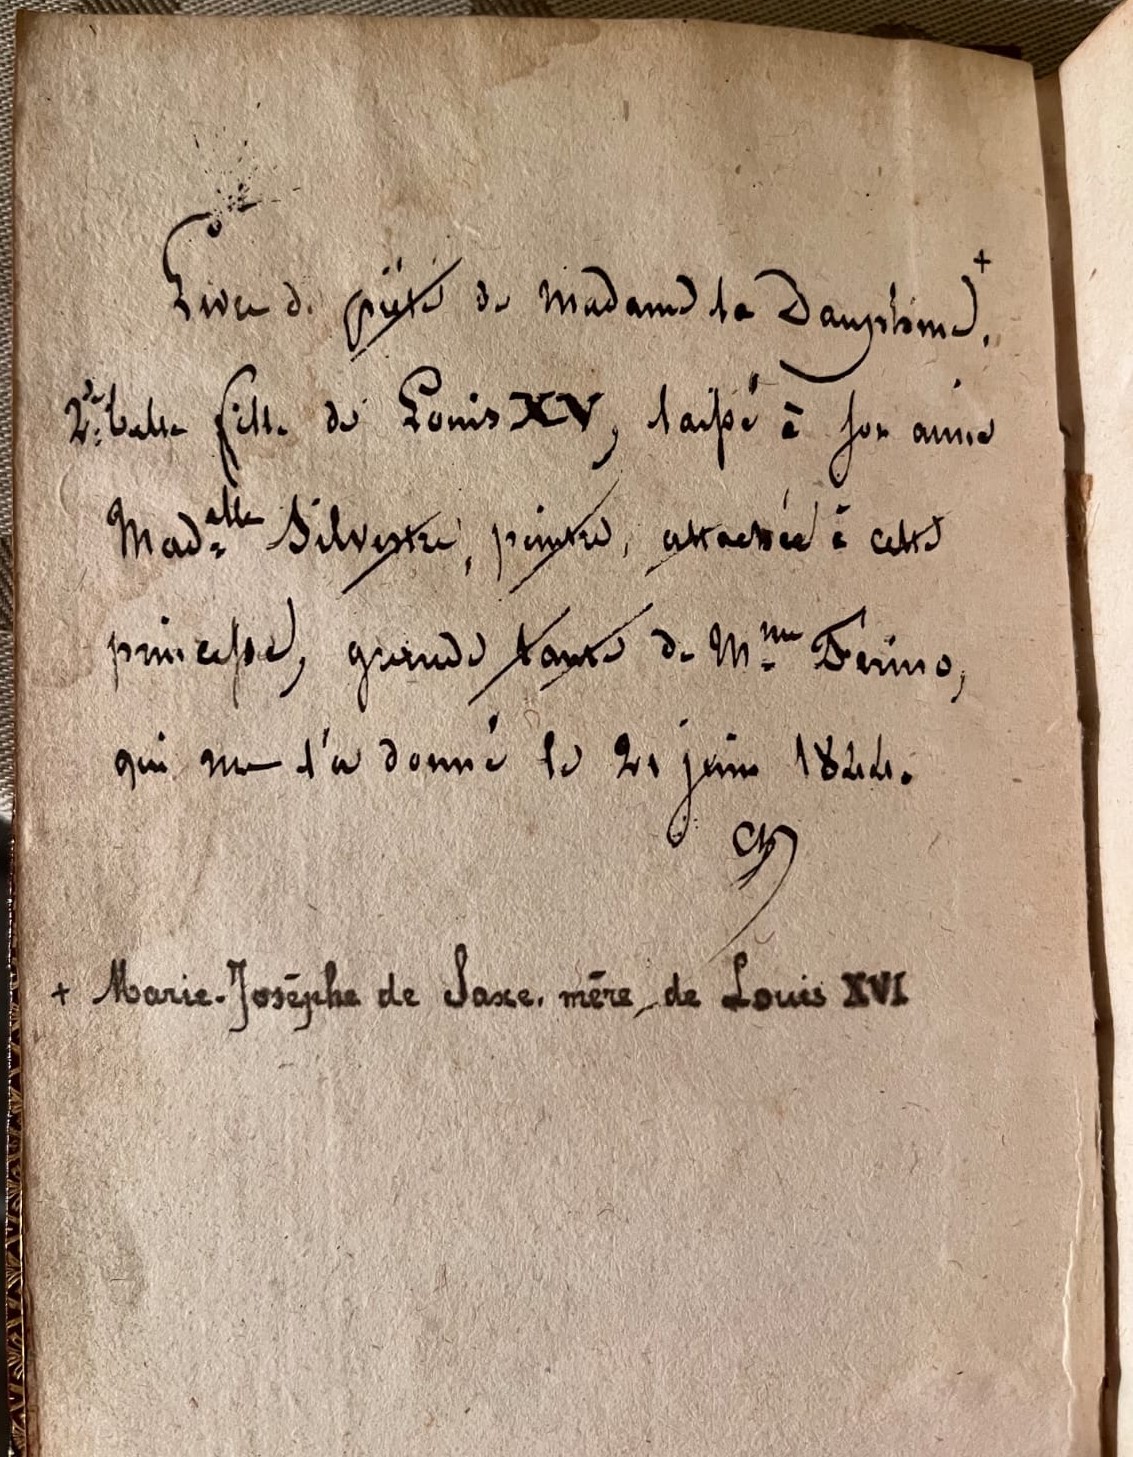 Livre de piété de Madame la Dauphine +,
2.de belle fille de Louis XV, laissé à son amie
Mad.elle Silvestre, peintre, attachée à cette
princesse, grande tante de M.me Ferino,
qui me l'a donné le 21 juin 1844.
+ Marie-Josèphe de Saxe, mère de Louis XVI